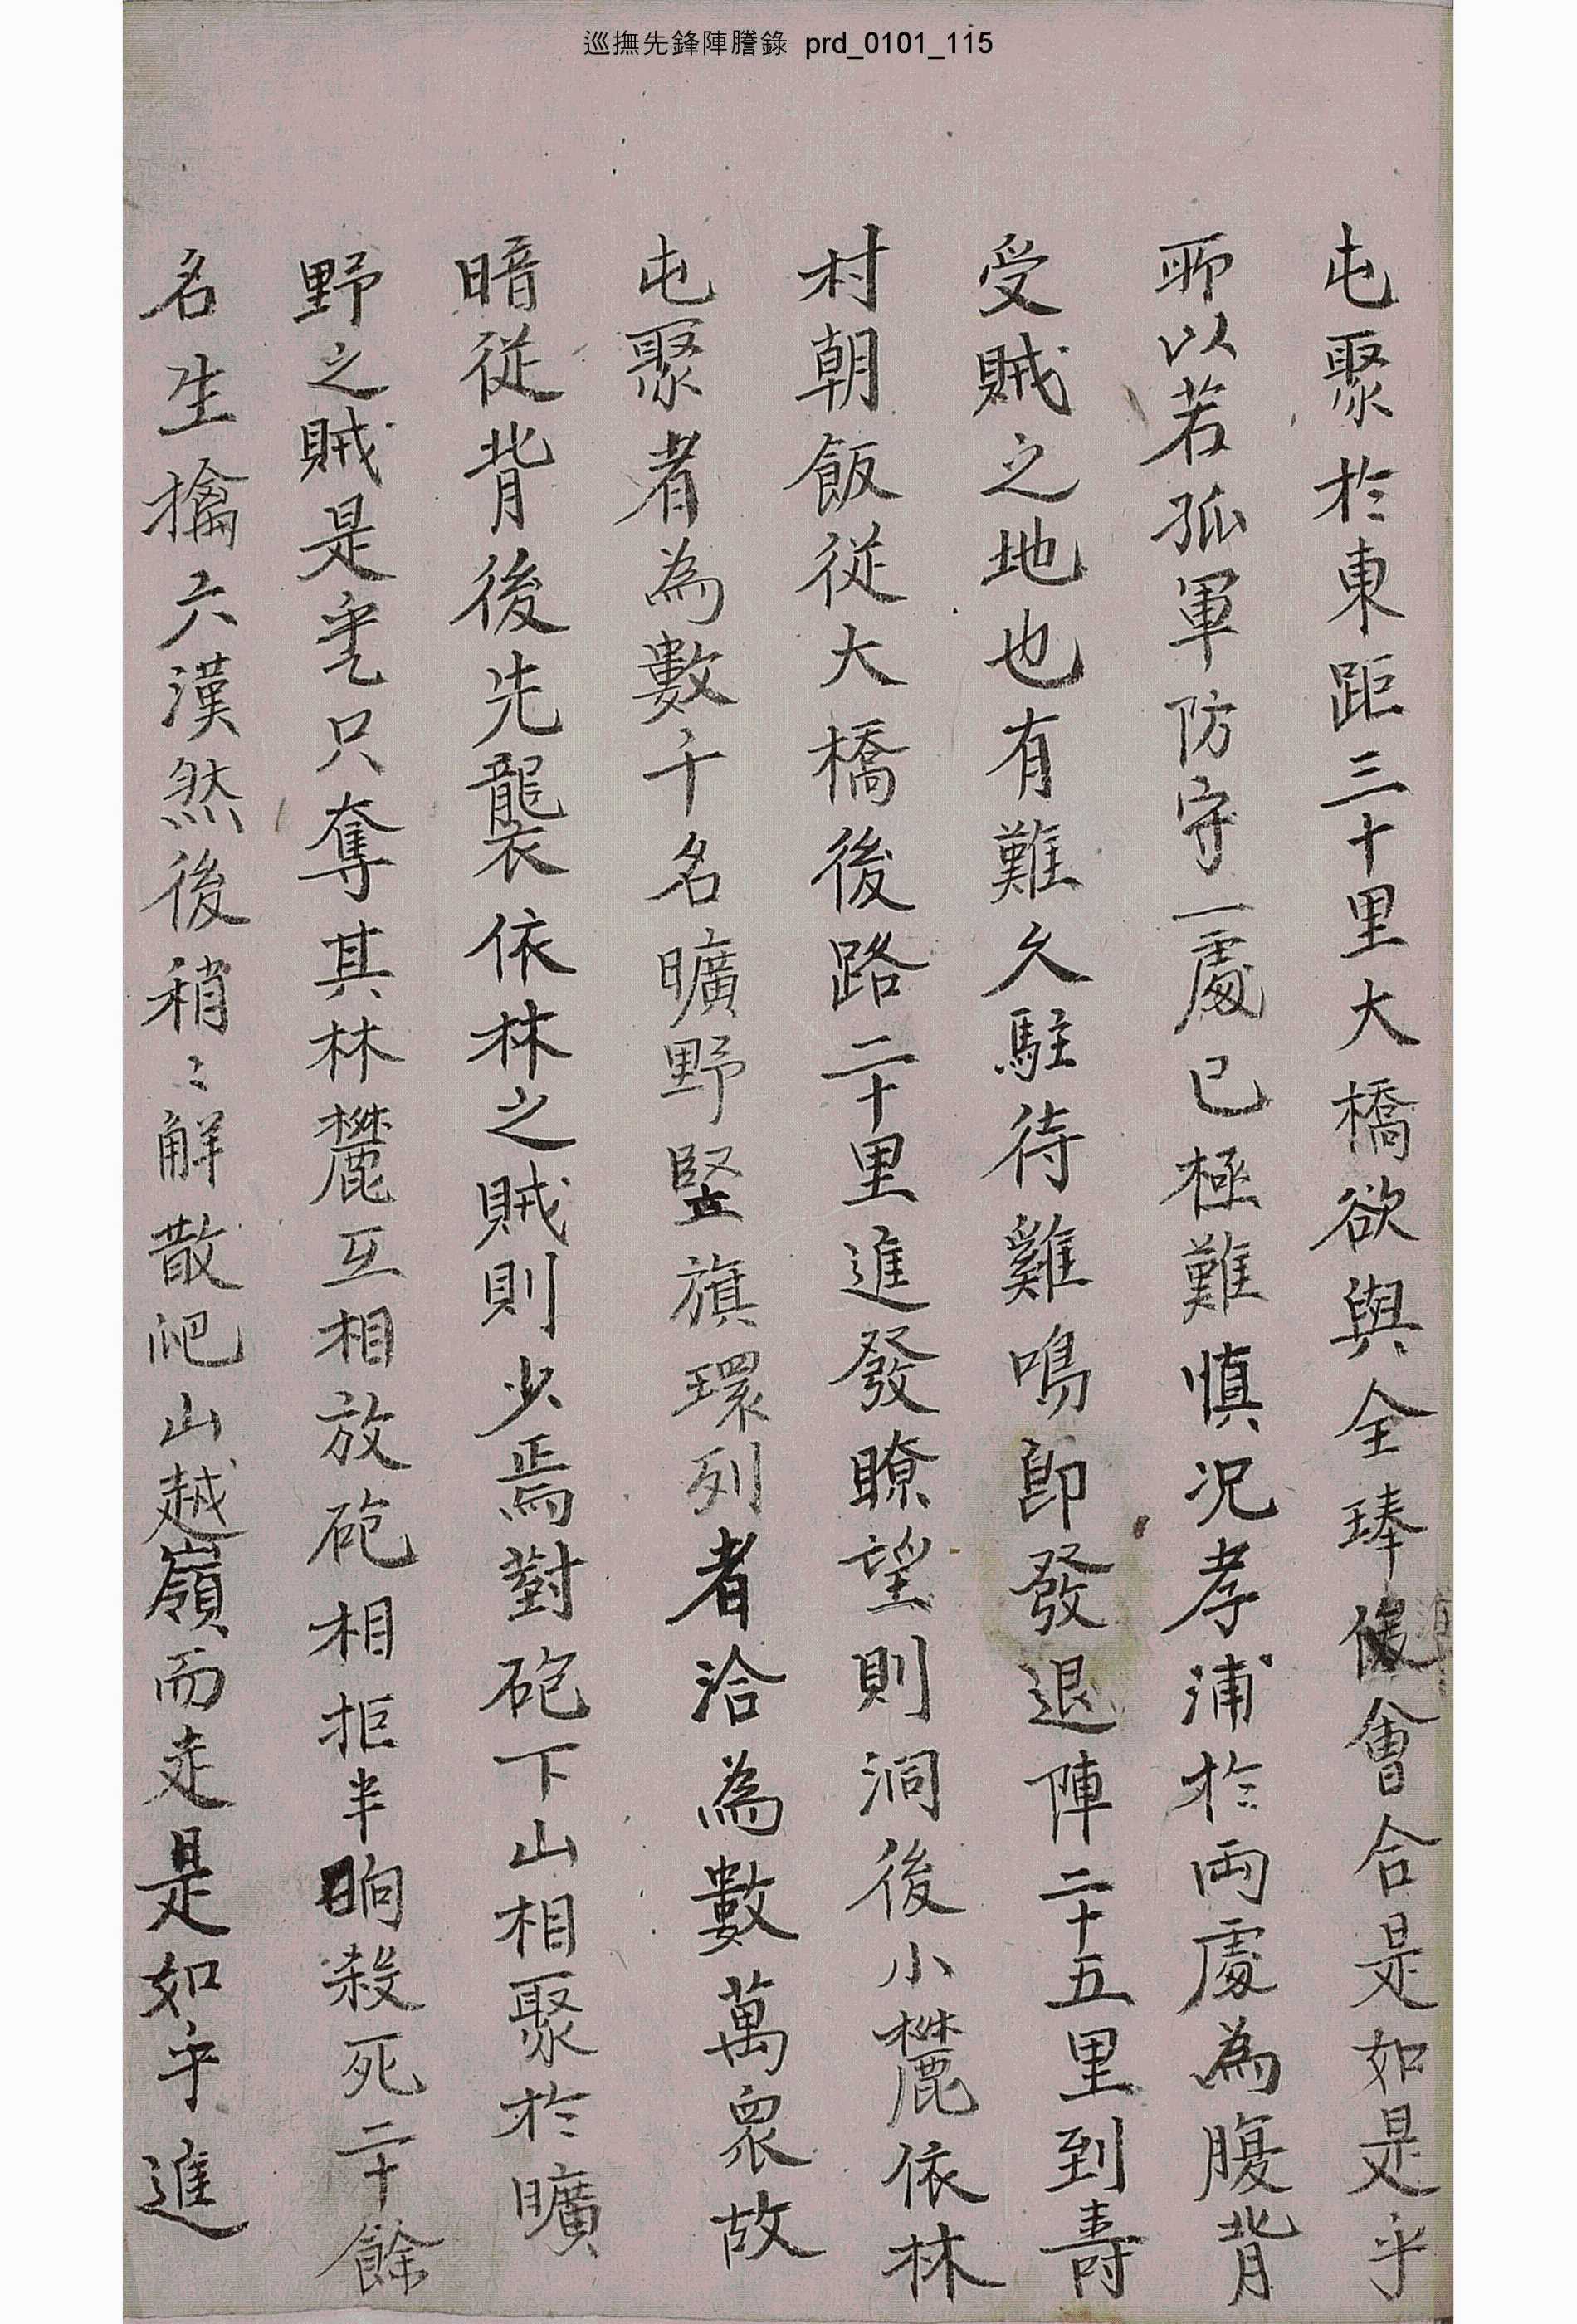 巡撫先鋒陣謄錄 prd_0101_115
屯聚於東距三十里大橋欲與全琫後會合是如是乎
所以若孤軍防守一處已極難慎况孝浦於両處為腹背
受賊之地也有難久駐待雞鳴卽發退陣二十五里到壽
村朝飯從大橋後路二十里進發瞭望則洞後小麓依林
屯聚者為數千名曠野竪旗環列者洽為數萬衆故
暗従背後先襲依林之賊則少焉對砲下山相聚於曠
野之賊是乎乙只奪其林麓互相放砲相拒半晌殺死二十餘
名生擒六漢然後稍〻解散爬山越嶺而走是如乎進